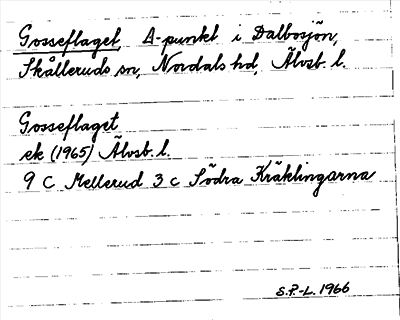 Gosseflaget, Δ-punkt i Dalbosjön,
Skålleruds sn, Nordals hd, Älvsb. l.
Gosseflaget
ek (1965) Älvsb. l.
9 C Mellerud 3 c Södra Kräklingarna
S.P.-L. 1966